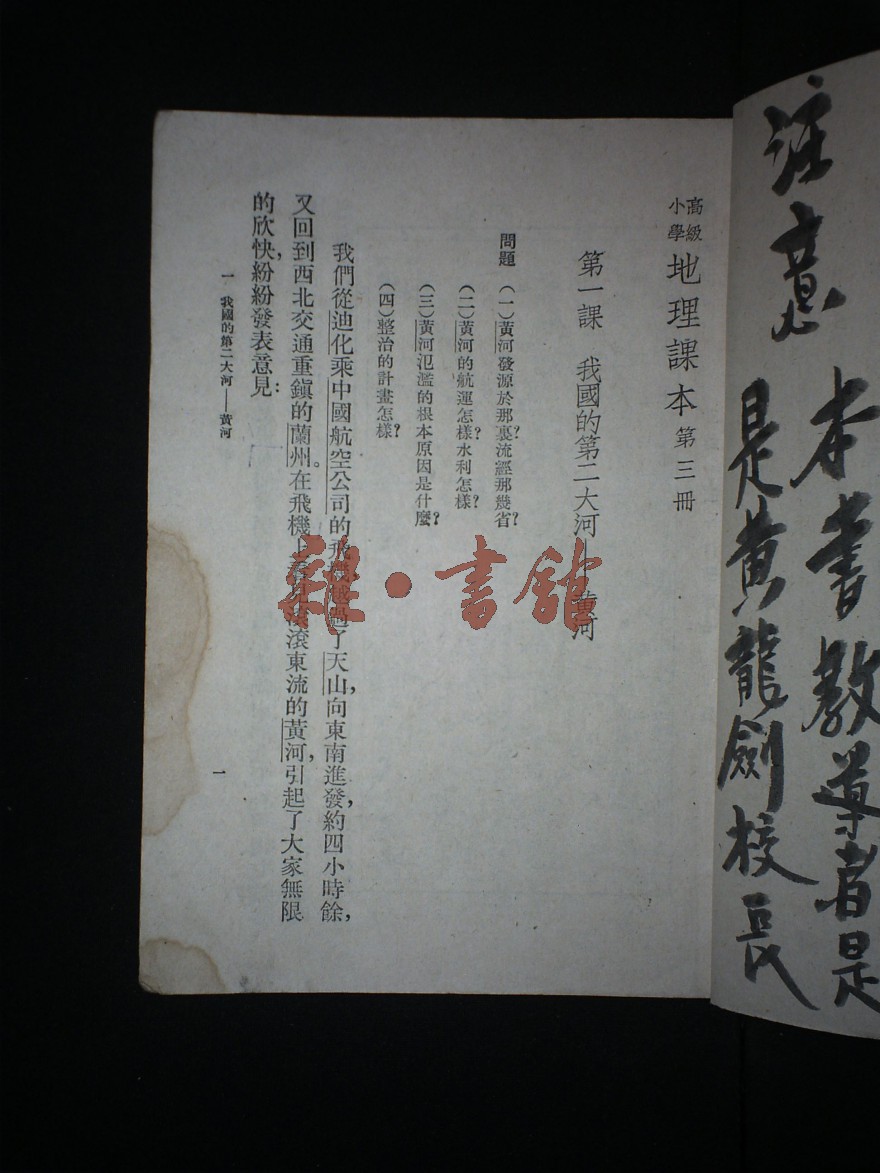 注意
本書教導者是
是黃龍劍校長
高級小學地理課本第三冊
第一課　我國的第二大河——黃河
問題　(一)黃河發源於那裏?流經那幾省?
(二)黃河的航運怎樣?水利怎樣?
(三)黃河氾濫的根本原因是什麼?
(四)整治的計畫怎樣?
我們從迪化乘中國航空公司的飛機越過了天山,向東南進發,約四小時餘,
又回到西北交通重鎮的蘭州。在飛機上看見滾滾東流的黃河,引起了大家無限
的欣快,紛紛發表意見:
一　我國的第二大河——黃河
一
雜·書館